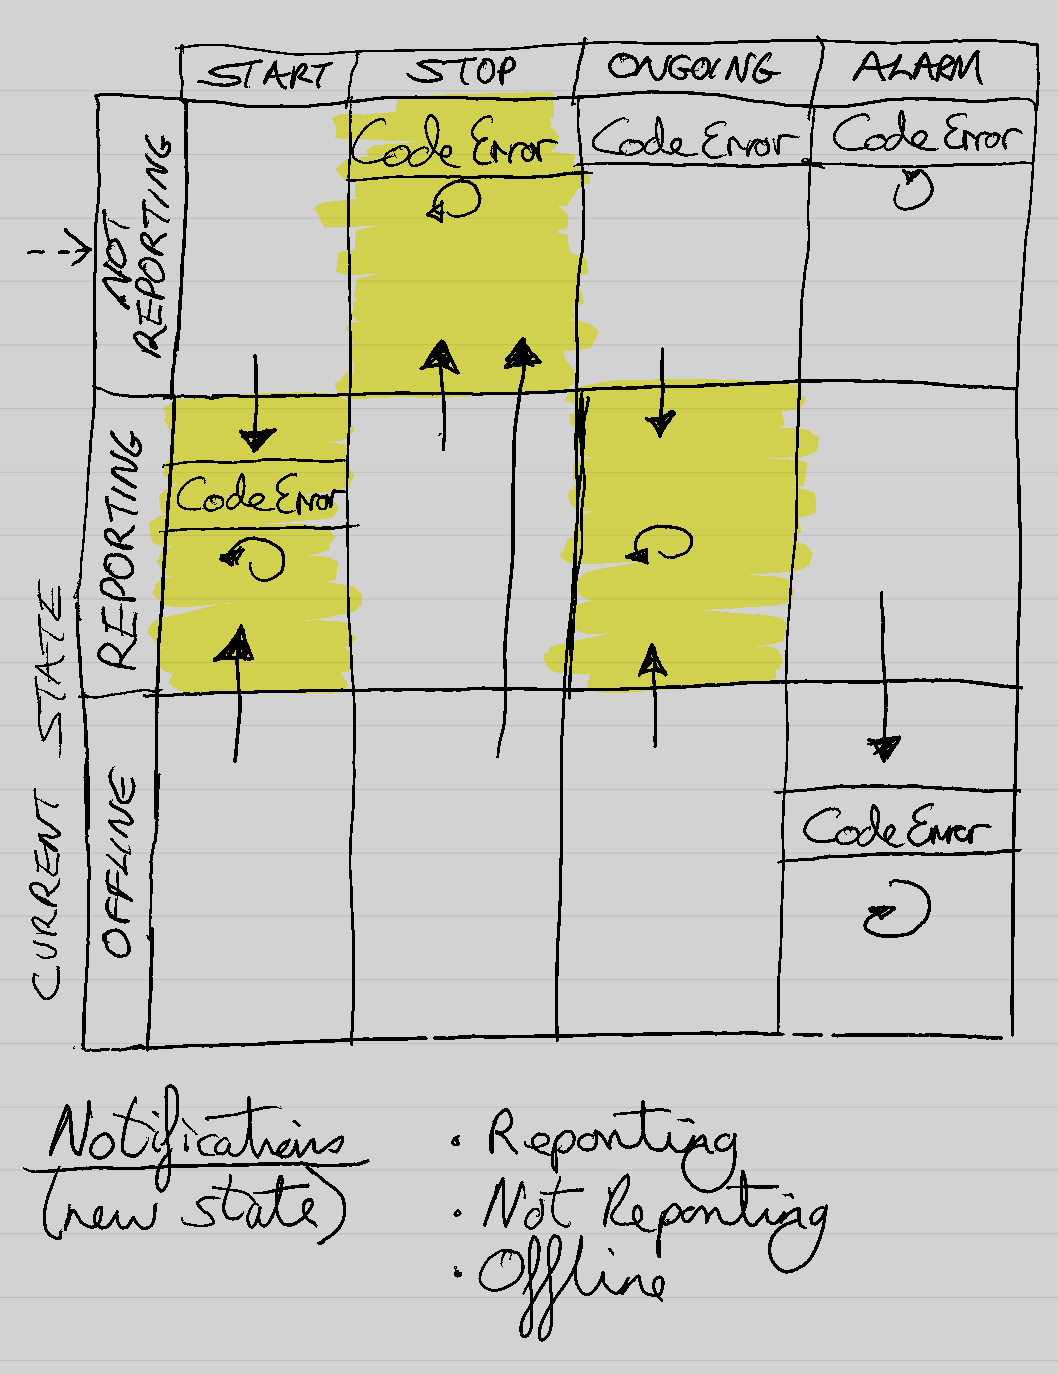 START STOP ONGOING ALARM
NOT
REPORTING
Code Error Code Error Code Error
REPORTING
Code Error
OFFLINE
Code Error
CURRENT STATE
Notifications
(new state)
· Reporting
· Not Reporting
· Offline